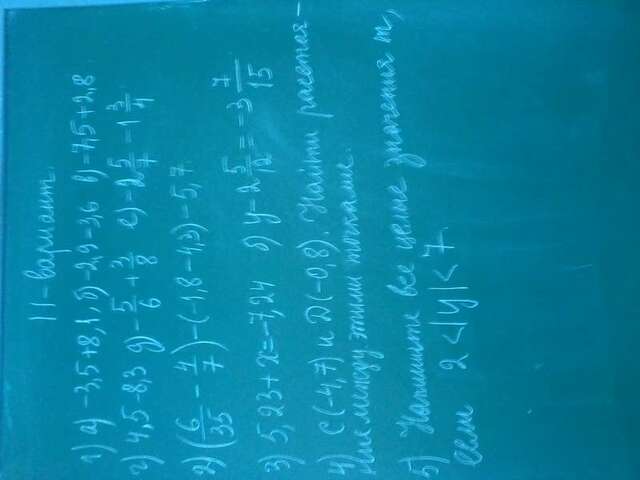 II-вариант.
1) а) -3,5+8,1, б) -2,9-3,6 в) -7,5+2,8
г) 4,5-8,3 д) -5/6+3/8 е) -2 5/7-1 3/4
2) (6/35-4/7)-(-1,8-4,3)-5,7
3) 5,23+x=-7,24 б) y-2 5/12=-3 7/15
4) C(-4,7) и D(-0,8). Найти расстоя-
ние между этими точками.
5) Напишите все целые значения m,
если 2<|y|<7.